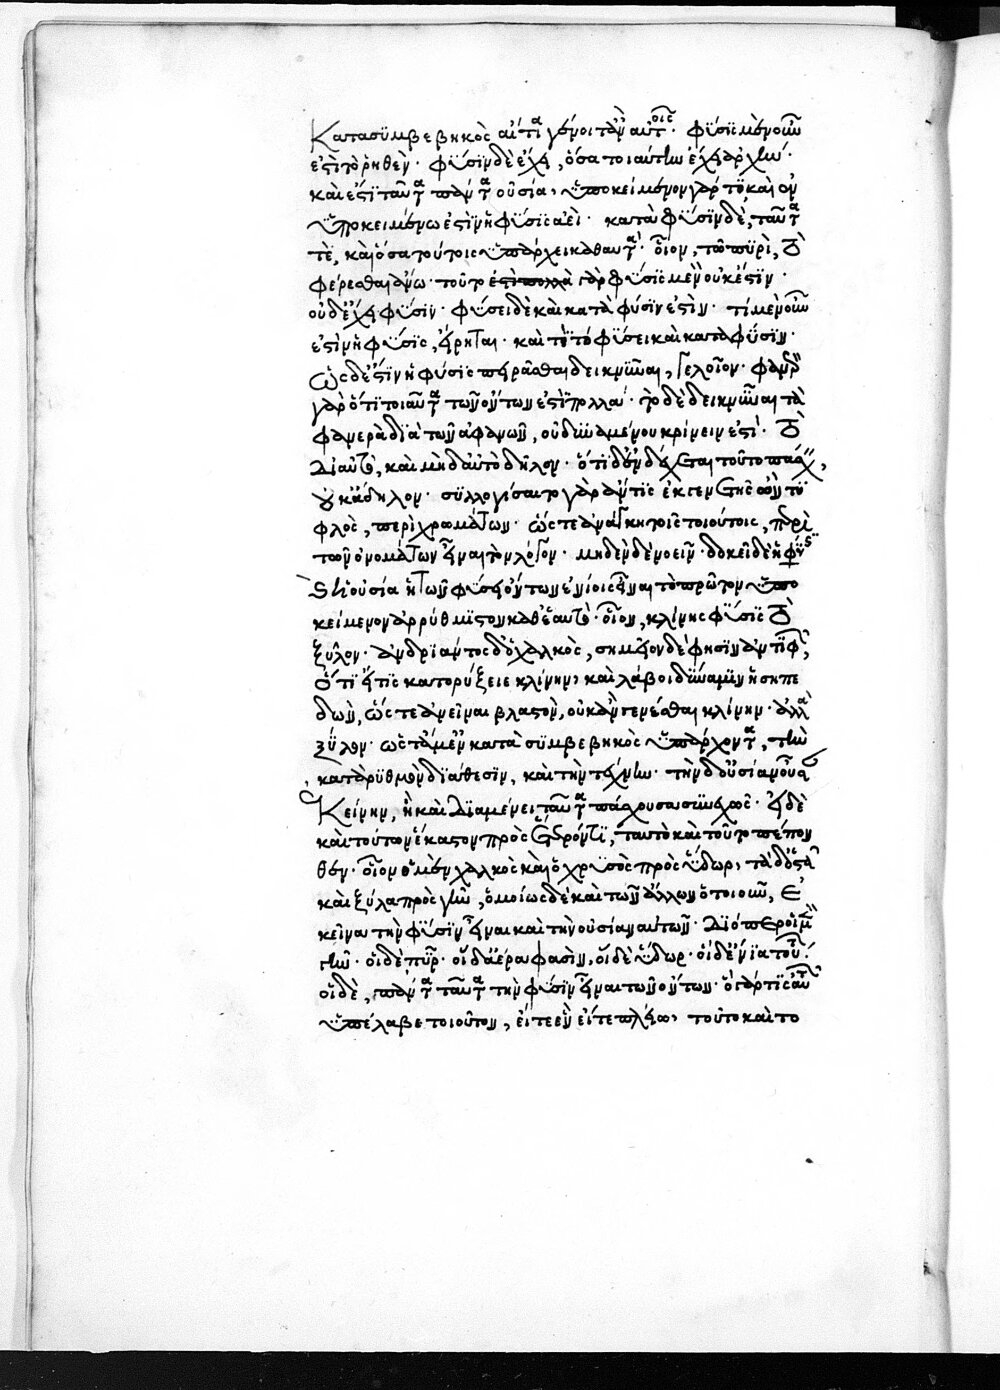 Κατασϋμβεβηκὸς αἴτια γένοιτ' ἂν αὐτοῖς· φύσις μὲν οὖν
ἐστὶ τὸ ῥηθέν· φύσιν δὲ ἔχει, ὅσα τοιαύτην ἔχει ἀρχήν·
καὶ ἐστὶ ταῦτα πάντα οὐσία, ὑποκείμενον γάρ τι καὶ ἐν
ὑποκειμένω ἐστὶν ἡ φύσις ἀεί· κατὰ φύσιν δὲ, ταῦτα
τὲ, καὶ ὅσα τούτοις ὑπάρχει καθαυτὰ· οἷον, τῶ πυρὶ, τὸ
φέρεσθαι ἄνω· τοῦτο γὰρ φύσις μὲν οὐκ ἔστιν·
οὐδ' ἔχει φύσιν· φύσει δὲ καὶ κατὰ φύσιν ἐστίν· τί μὲν οὖν
ἐστὶν ἡ φύσις, εἴρηται· καὶ τί τὸ φύσει καὶ κατὰ φύσιν·
ὡς δ' ἔστιν ἡ φύσις πειρᾶσθαι δεικνύναι, γελοῖον· φανερὸν
γὰρ ὅτι τοιαῦτα τῶν ὄντων ἐστὶ πολλά· τὸ δὲ δεικνύναι τὰ
φανερὰ διὰ τῶν ἀφανῶν, οὐ δυναμένου κρίνειν ἐστὶ· τὸ
δι' αὑτὸ, καὶ μὴ δι' αὑτὸ δῆλον· ὅτι δ' ἐνδέχεται τοῦτο πάσχειν,
οὐκ ἄδηλον· συλλογίσαιτο γὰρ ἄν τις ἐκ γενετῆς ὢν τυ
φλὸς, περὶ χρωμάτων· ὥστε ἀνάγκη τοῖς τοιούτοις, περὶ
τῶν ὀνομάτων εἶναι τὸν λόγον· μηδὲν δὲ νοεῖν· δοκεῖ δὲ ἡ φύσις
καὶ ἡ οὐσία ἡ τῶν φύσει ὄντων ἐνίοις εἶναι τὸ πρῶτον ὑπο
κείμενον ἀρρύθμιστον καθ' ἑαυτὸ· οἷον, κλίνης φύσις τὸ
ξύλον· ἀνδριάντος δ' ὁ χαλκὸς, σημεῖον δέ φησιν ἀντιφῶν,
ὅτι εἴ τις κατορύξειε κλίνην, καὶ λάβοι δύναμιν ἡ σηπε
δὼν, ὥστε ἀνεῖναι βλαστὸν, οὐκ ἂν γενέσθαι κλίνην· ἀλλὰ
ξύλον· ὡς τὸ μὲν κατὰ συμβεβηκὸς ὑπάρχοντα, τὴν
κατὰ ρυθμὸν διάθεσιν, καὶ τὴν τέχνην· τὴν δ' οὐσίαν οὖσαν
Κείνην, ἣ καὶ διαμένει ταῦτα πάσχουσα συνεχῶς· εἰ δὲ
καὶ τούτων ἕκαστον πρὸς ἕτερόν τι, ταυτὸ καὶ τοῦτο πέπον
θεν· οἷον ὁ μὲν χαλκὸς καὶ ὁ χρυσὸς πρὸς ὕδωρ, τὰ δ' ὀστᾶ
καὶ ξύλα πρὸς γῆν, ὁμοίως δὲ καὶ τῶν ἄλλων ὁτοιοῦν, ἐ
κεῖναι τὴν φύσιν εἶναι καὶ τὴν οὐσίαν αὐτῶν· διόπερ οἱ μὲν
γῆν· οἱ δὲ πῦρ· οἱ δ' ἀέρα φασὶν, οἱ δὲ ὕδωρ· οἱ δ' ἔνια τούτων·
οἱ δὲ, πάντα ταῦτα τὴν φύσιν εἶναι τῶν ὄντων· ὃ γάρ τις αὐτῶν
ὑπέλαβε τοιοῦτον, εἴτε ἓν εἴτε πλείω, τοῦτο καὶ το